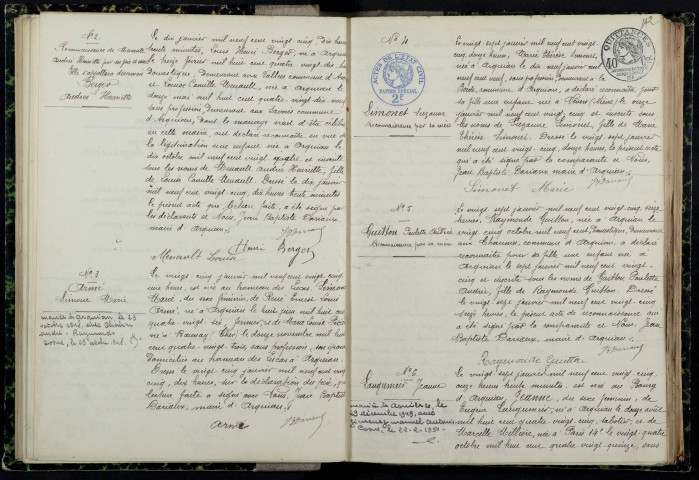 N° 2
Reconnaissance de Menault
Andrée Henriette par ses père et mère
Elle s'appellera désormais
Berger
Andrée Henriette
Le dix janvier mil neuf cent vingt-cinq dix heures
trente minutes, Louis Henri Berger, né à Arquian
le treize février mil huit cent quatre vingt dix neuf
domestique, demeurant aux Vallées commune d'Arquian
et Louise Camille Menault, née à Arquian le
douze mai mil huit cent quatre-vingt-dix-neuf
sans profession, demeurant aux commune
d'Arquian, dont le mariage vient d'être célébré
en cette mairie ont déclaré reconnaître en vue de
la légitimation une enfant née à Arquian le
dix octobre mil neuf cent vingt quatre et inscrite
sous les noms de Menault Andrée Henriette, fille
de Louise Camille Menault. Dressé le dix janvier
mil neuf cent vingt-cinq, dix heures trente minutes
le présent acte que lecture faite, a été signé par
les déclarants et Nous, Jean Baptiste Dariaux,
maire d'Arquian.
Henri Berger
Menault Louise
N° 3
Armé
Simone Marie
mariée à Arquian le 23
octobre 1948, avec
André Raymond
Le vingt cinq janvier mil neuf cent vingt cinq
une heure, est née au hameau des Cocas Simone
Marie, du sexe féminin, de René Ernest
Armé, né à Arquian le huit juin mil huit cent
quatre-vingt-six, fermier, et de Maria
née à Annay, le douze novembre, mil huit
cent quatre-vingt-trois, sans profession, son épouse
Domiciliés au hameau des Cocas à Arquian.
Dressé le vingt cinq janvier mil neuf cent vingt
cinq, dix heures, sur la déclaration du père, qui
lecture faite a signé avec Nous, Jean Baptiste
Dariaux, maire d'Arquian.
Armé
112
N° 4
ACTES DE L'ÉTAT CIVIL
PAPIER SPÉCIAL
2F
QUITTANCES
40
Simonet Suzanne
Reconnaissance par sa mère
Le vingt sept janvier mil neuf cent vingt-
cinq, douze heures, Marie Thérèse Simonet,
née à Arquian le dix janvier mil neuf
cent neuf, sans profession demeurant à la
commune d'Arquian, a déclaré reconnaître pour
sa fille une enfant née à Nevers (Nièvre) le onze
janvier mil neuf cent vingt, cinq et inscrite sous
les noms de Suzanne Simonet, fille de Marie
Thérèse Simonet. Dressé le vingt sept janvier
mil neuf cent vingt-cinq, douze heures, le présent acte
qui a été signé par la comparante et Nous,
Jean Baptiste Dariaux maire d'Arquian.
Simonet Marie
N° 5
Guitton Paulette Andrée
Reconnaissance par sa mère
Le vingt sept janvier mil neuf cent vingt cinq, seize
heures, Raymonde Guitton, née à Arquian le
vingt cinq octobre mil neuf cent, domestique, demeurant
aux Chaumes, commune d'Arquian, a déclaré
reconnaître pour sa fille une enfant née à
Arquian le sept janvier mil neuf cent vingt-
cinq et inscrite sous les noms de Guitton Paulette
Andrée, fille de Raymonde Guitton. Dressé
le vingt-sept janvier mil neuf cent vingt-cinq
seize heures, le présent acte de reconnaissance qui
a été signé par la comparante et Nous, Jean
Baptiste Dariaux, maire d'Arquian.
Raymonde Guitton
N° 6
Languemier Jeanne
mariée à Asnières, le
décembre 1949, avec
Le vingt sept, janvier mil neuf cent vingt cinq,
onze heures trente minutes, est née au Bourg
d'Arquian, Jeanne, du sexe féminin, de
Eugène Languemier, né à Arquian le douze août
mil huit cent quatre vingt-cinq, sabotier, et de
Marcelle Millière, née à Paris 14e le vingt-quatre
octobre mil huit cent quatre vingt-quinze, sans